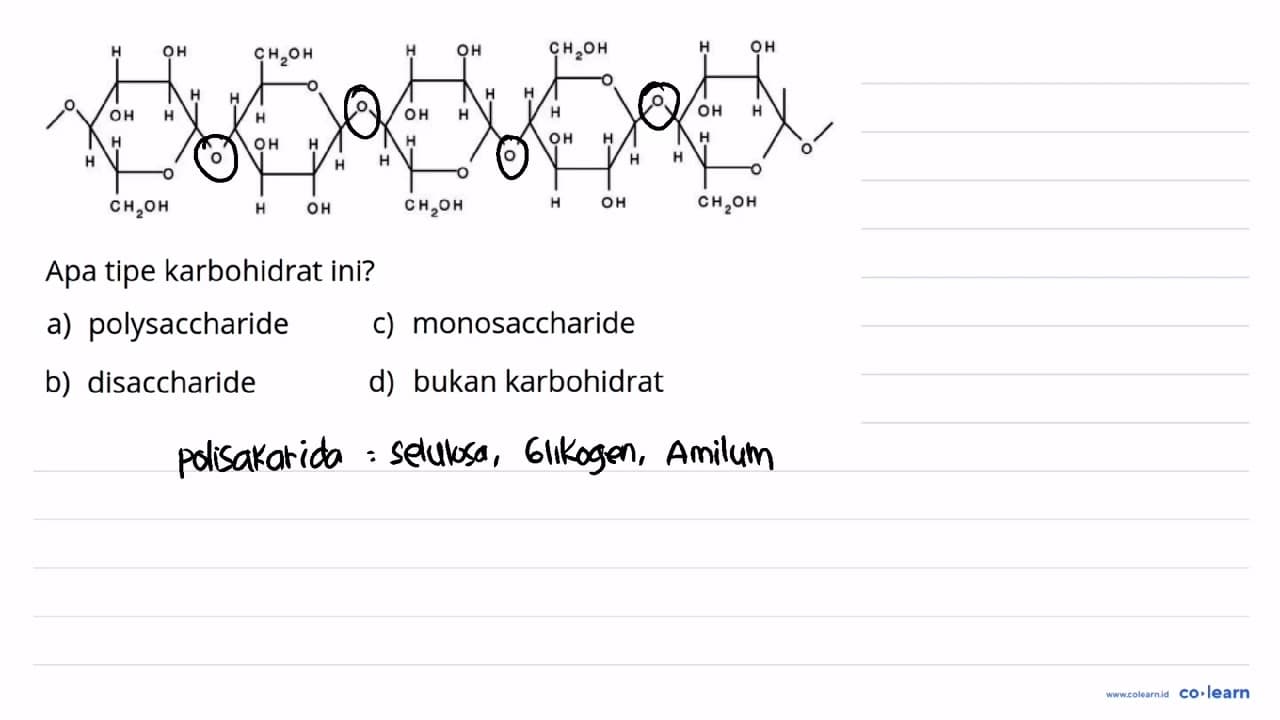 H OH CH₂OH H OH CH₂OH H OH
O H H O H H O O
OH H H OH H H OH H
H O OH H H H O OH H H H O
H O H CH₂OH H OH H O H CH₂OH H OH H CH₂OH
Apa tipe karbohidrat ini?
a) polysaccharide c) monosaccharide
b) disaccharide d) bukan karbohidrat
polisakarida = selulosa, Glikogen, Amilum
www.colearn.id co·learn